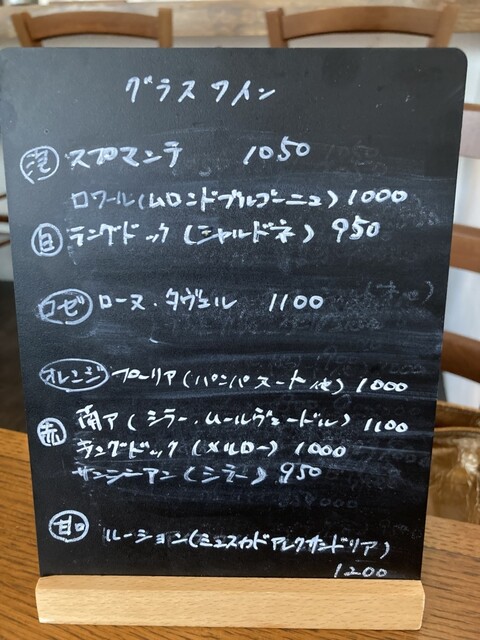 グラスワイン
泡 スプマンテ 1050
ロワール(ムロンドブルゴーニュ) 1000
白 ラングドック (シャルドネ) 950
ロゼ ローヌ・タヴェル 1100
オレンジ プーリア(パンパスート他) 1000
赤 南ア(シラー・ムールヴェードル) 1100
ラングドック (メルロー) 1000
サンシニアン(シラー) 950
甘口 ルーション(ミュスカドアレクサンドリア)
1200